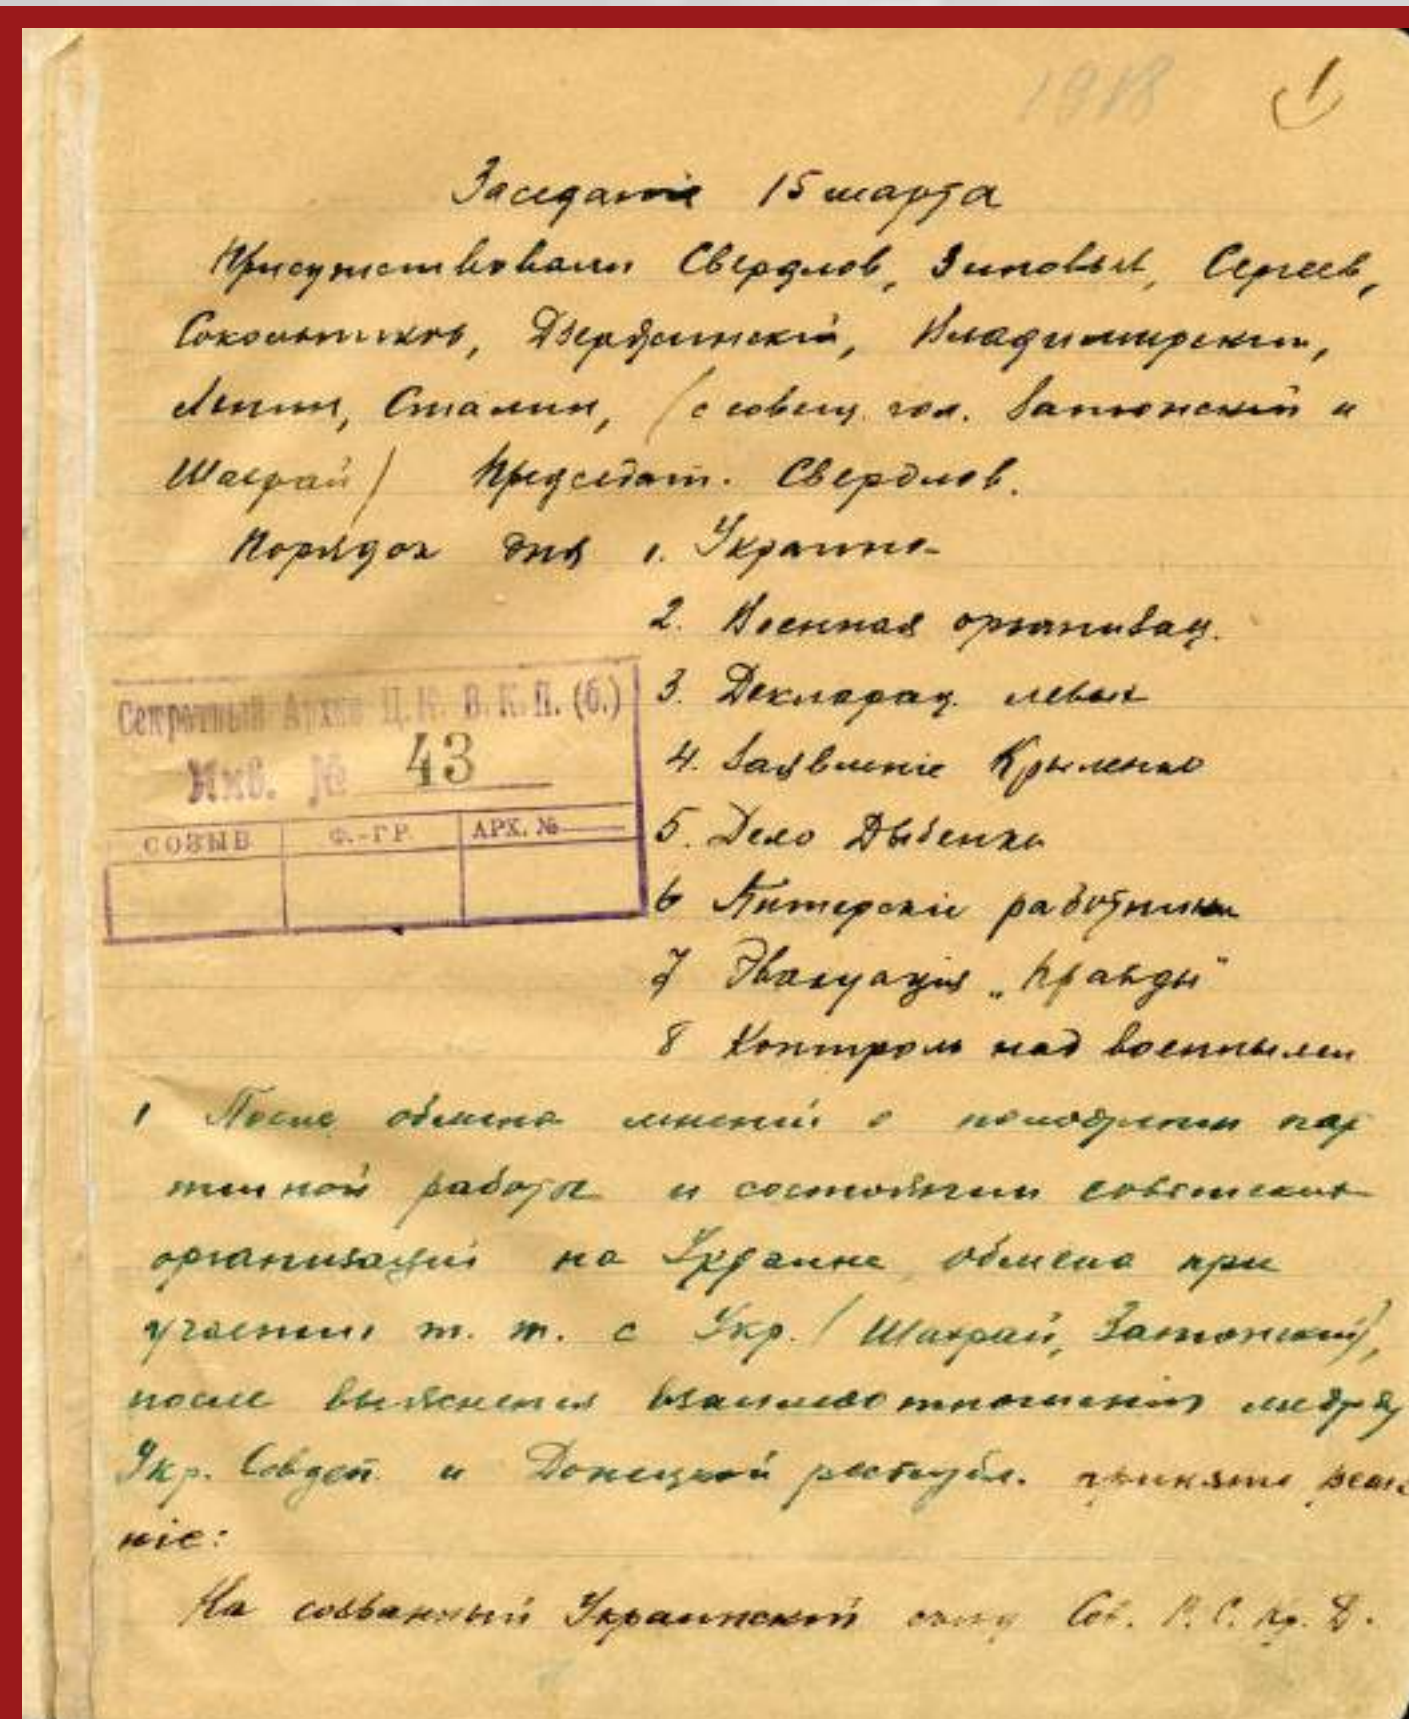 1918
1
Заседаніе 15 марта
Присутствовали Свердлов, Зиновьев, Сергеев,
Сокольников, Дзержинскій, Владимирскии,
Ленин, Сталин, (с совещ. гол. Затонский и
Шахрай) Председат. Свердлов.
Порядок дня 1. Украина
2. Военная организац.
3. Декларац. левых
4. Заявленіе Крыленко
5. Дело Дыбенко
6 Питерскіе работники
7 Эвакуація „Правды"
8 Контроль над военными
Секретный Архив Ц. К. В. К. П. (б.)
Инв. № 43
СОЗЫВ Ф.-ГР. АРХ. №
1 После обмена мнений о положении пар
тийной работы и состоянии советских
организаций на Украине, обмена при
участии т. т. с Укр. (Шахрай, Затонский),
после выяснения взаимоотношений между
Укр. Совдеп. и Донецкой республ. принято реше
ніе:
На созванный Украинский Сов. Р. С. Кр. Д.